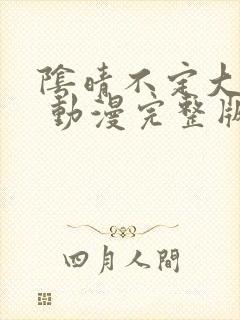 陰晴不定大
動漫完整版
四月人間